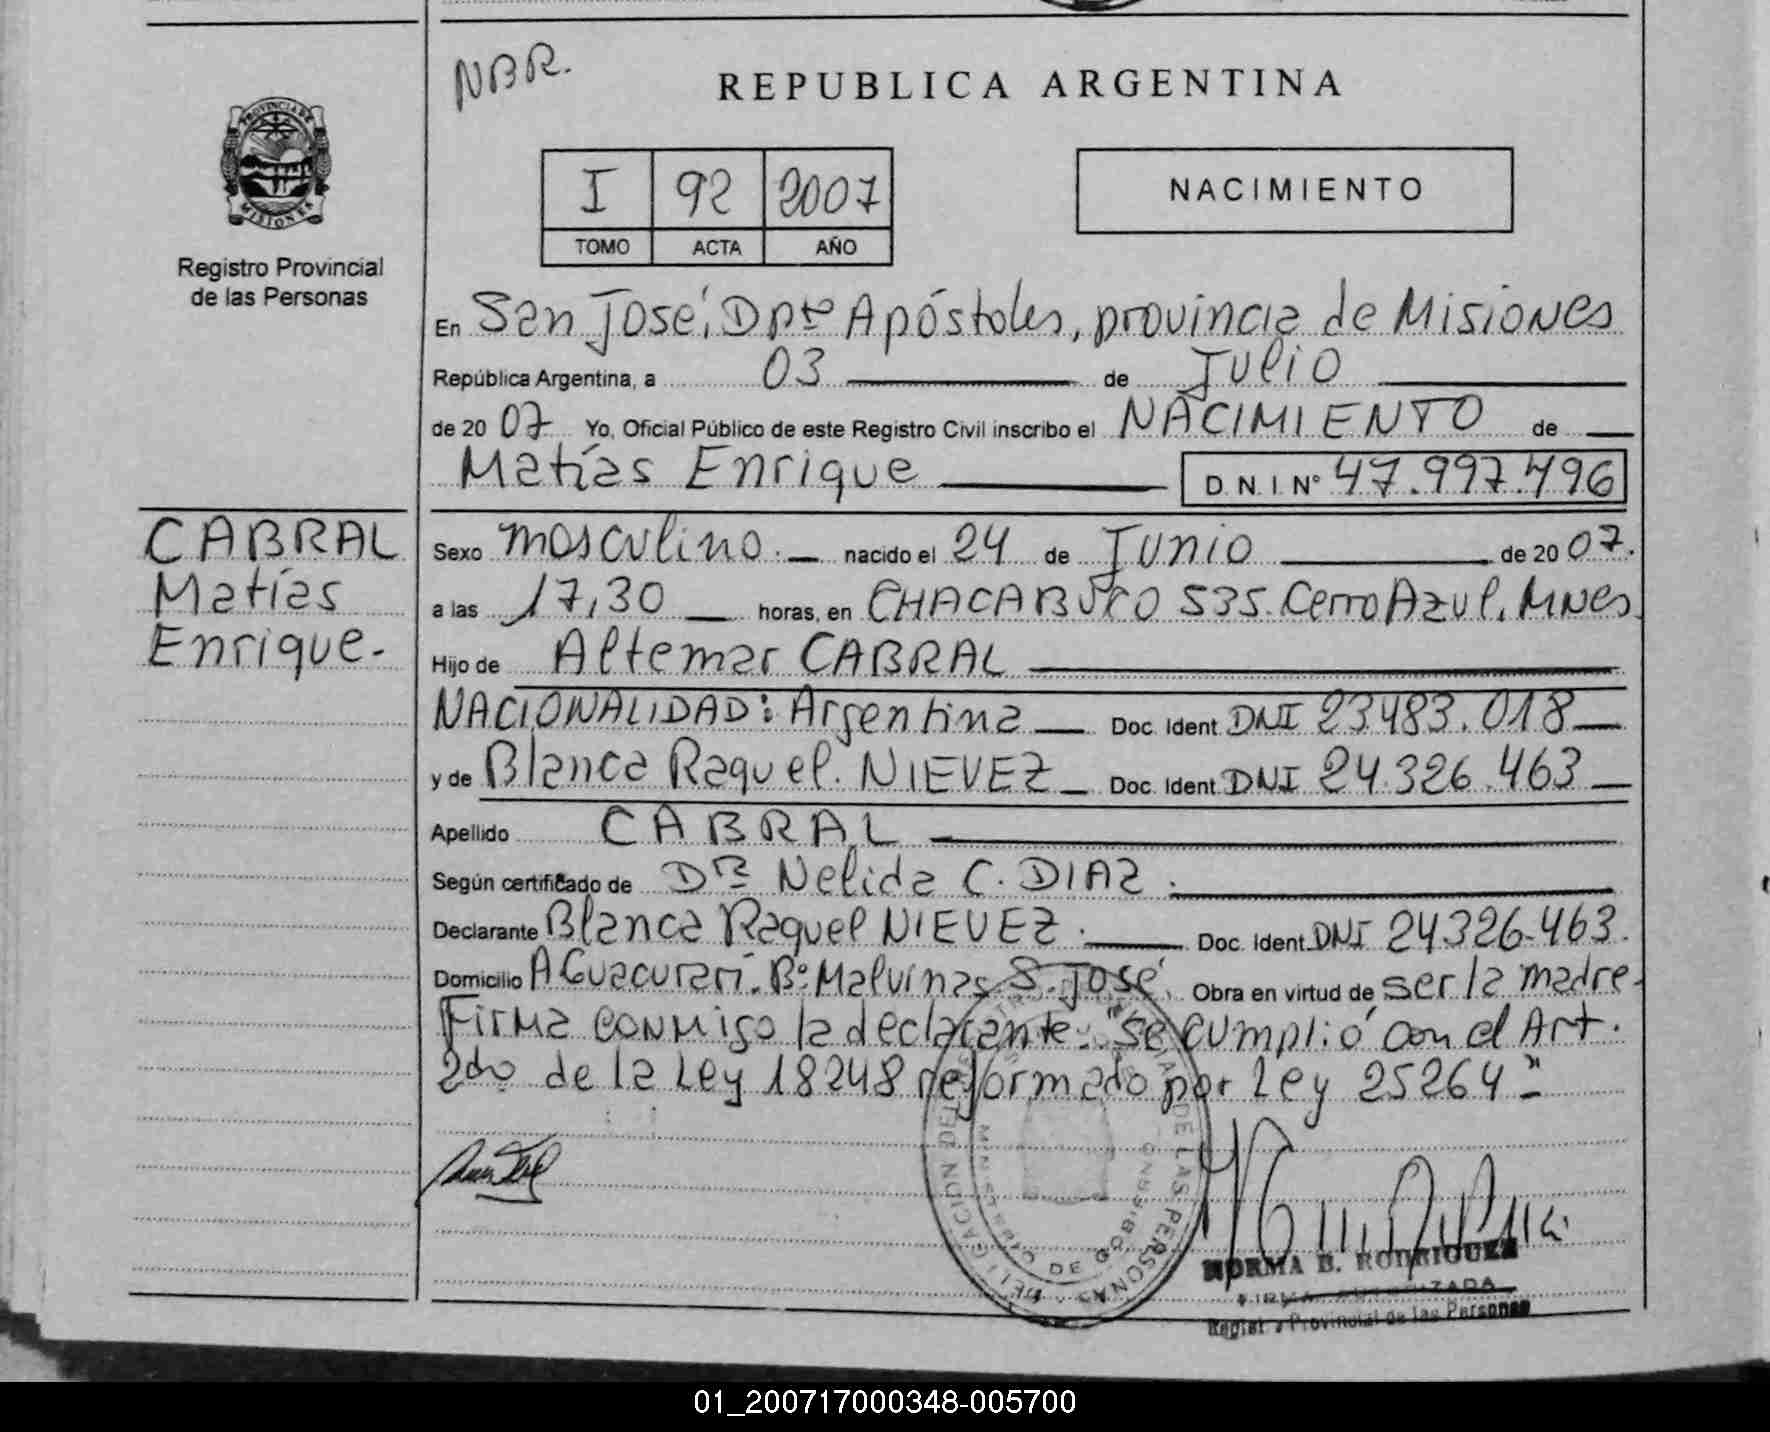 NBR.
REPUBLICA ARGENTINA
I 92 2007
TOMO ACTA AÑO
NACIMIENTO
PROVINCIA DE
MISIONES
Registro Provincial
de las Personas
En San José, Dpto Apóstoles, provincia de Misiones
República Argentina, a 03 de Julio
de 2007 Yo, Oficial Público de este Registro Civil inscribo el NACIMIENTO de
Matías Enrique D.N.I Nº 47.997.496
CABRAL
Matías
Enrique.
Sexo masculino. nacido el 24 de Junio de 2007.
a las 17,30 horas, en CHACABUCO 535. Cerro Azul, Mnes.
Hijo de Altemar CABRAL
NACIONALIDAD: Argentina Doc. Ident. DNI 23.483.018
y de Blanca Raquel. NIEVEZ Doc. Ident. DNI 24.326.463
Apellido CABRAL
Según certificado de Dra Nelida C. DIAZ.
Declarante Blanca Raquel NIEVEZ. Doc. Ident. DNI 24326.463.
Domicilio A. Guacurarí. Bº Malvinas S. José. Obra en virtud de ser la madre.
Firma conmigo la declarante. "se cumplió con el Art.
2do de la Ley 18248 reformado por Ley 25264"
DELEGACION DE LAS PERSONAS
DE GOBIERNO
NORMA B. RODRIGUEZ
Registro Provincial de las Personas
01_200717000348-005700